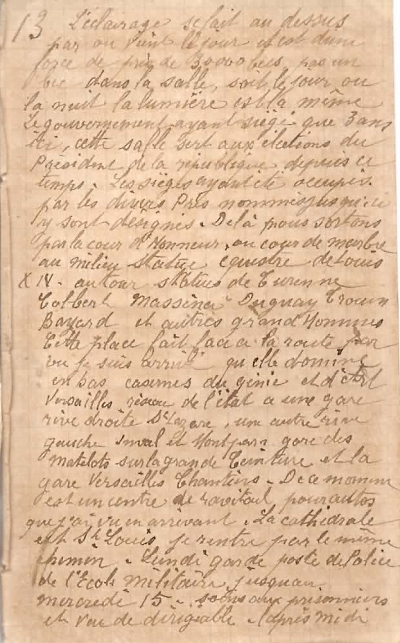 13 L'éclairage se fait au dessus
par ou vient le jour il est d'une
force de près de 30000 becs, pas un
bec dans la salle, soit le jour ou
la nuit la lumière est la même
Le gouvernement ayant siégé que 3 ans
ici, cette salle sert aux élections du
Président de la république depuis ce
temps. Les sièges ayant été occupés
par les divers Prés nommés jusqu'ici
y sont désignés. De là nous sortons
par la cour d'Honneur, ou cour de marbre
au milieu statue équestre de Louis
XIV. autour statues de Turenne
Colbert Masséna Duguay Trouin
Bayard et autres grand Hommes
Cette place fait face à la route par
ou je suis arrivé qu'elle domine
en bas casernes du génie et d'
Versailles réseau de l'état a une gare
rive droite St Lazare, une autre rive
gauche Inval et Montpar gare des
Matelots sur la grande Ceinture et la
gare Versailles Chantiers. De ce moment
est un centre de ravitail pour autos
que j'ai vu en arrivant. La cathédrale
est St Louis, je rentre par le même
chemin. Lundi garde poste de Police
de l'École militaire jusqu'au
mercredi 15. aux prisonniers
et vue de dirigeable. L'après midi